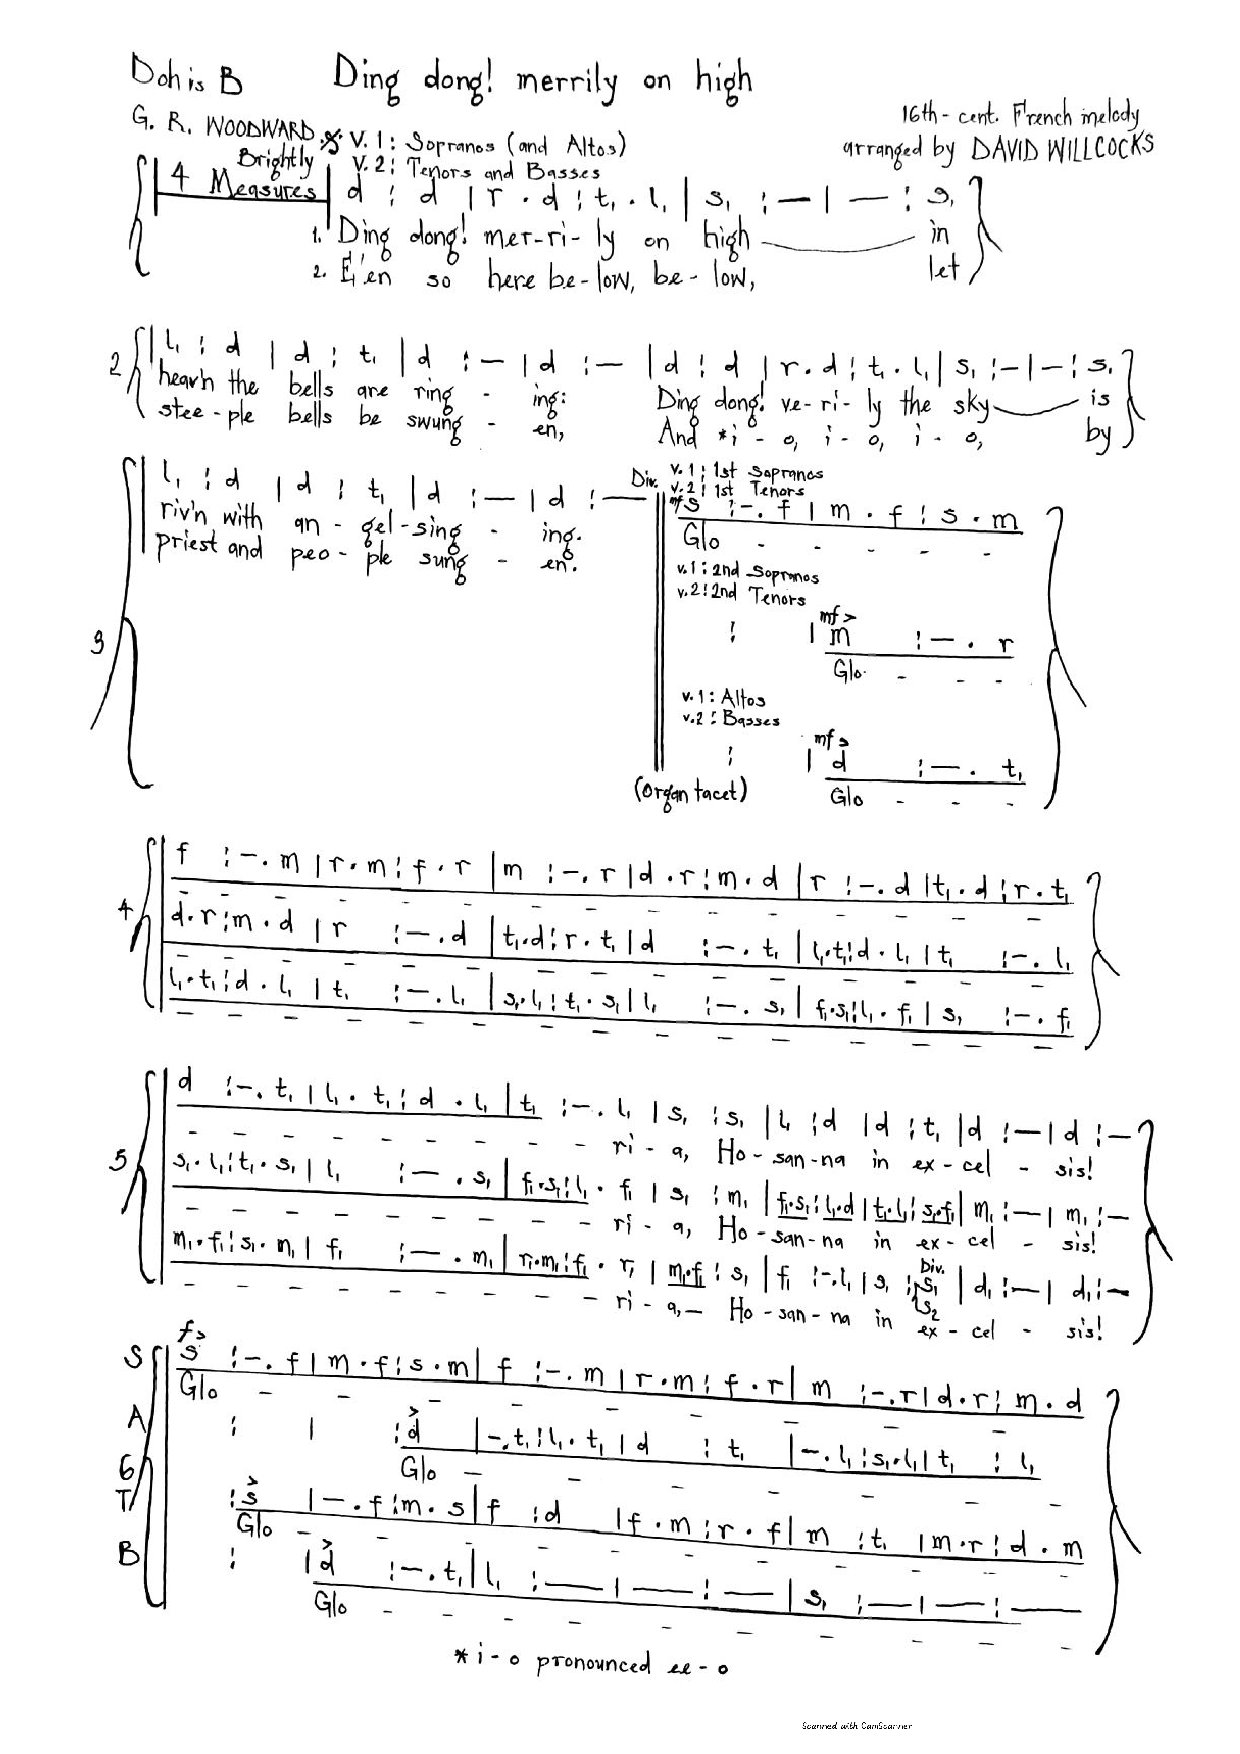 Doh is B Ding dong! merrily on high
G. R. WOODWARD
16th-cent. French melody
arranged by DAVID WILLCOCKS
Brightly
V. 1: Sopranos (and Altos)
V. 2: Tenors and Basses
4 Measures
d : d | r . d : t₁ . l₁ | s₁ : — | — : s₁
1. Ding dong! mer-ri-ly on high in
2. E'en so here be-low, be-low, let
2
l₁ : d | d : t₁ | d : — | d : — | d : d | r . d : t₁ . l₁ | s₁ : — | — : s₁
heav'n the bells are ring - ing: Ding dong! ve-ri-ly the sky is
stee-ple bells be swung - en, And *i-o, i-o, i-o, by
3
l₁ : d | d : t₁ | d : — | d : —
riv'n with an-gel-sing - ing.
priest and peo-ple sung - en.
Div. v. 1: 1st Sopranos
v. 2: 1st Tenors
mf
s : - . f | m . f : s . m
Glo - - - - -
v.1: 2nd Sopranos
v.2: 2nd Tenors
mf >
: | m : — . r
Glo - - -
v.1: Altos
v.2: Basses
mf >
: | d : — . t₁
Glo - - -
(Organ tacet)
4
f : - . m | r . m : f . r | m : - . r | d . r : m . d | r : - . d | t₁ . d : r . t₁
d . r : m . d | r : - . d | t₁ . d : r . t₁ | d : - . t₁ | l₁ . t₁ : d . l₁ | t₁ : - . l₁
l₁ . t₁ : d . l₁ | t₁ : - . l₁ | s₁ . l₁ : t₁ . s₁ | l₁ : - . s₁ | f₁ . s₁ : l₁ . f₁ | s₁ : - . f₁
5
d : - . t₁ | l₁ . t₁ : d . l₁ | t₁ : - . l₁ | s₁ : s₁ | l₁ : d | d : t₁ | d : — | d : —
ri - a, Ho-san-na in ex-cel - sis!
s₁ . l₁ : t₁ . s₁ | l₁ : — . s₁ | f₁ . s₁ : l₁ . f₁ | s₁ : m₁ | f₁ . s₁ : l₁ . d | t₁ . l₁ : s₁ . f₁ | m₁ : — | m₁ : —
ri - a, Ho-san-na in ex-cel - sis!
m₁ . f₁ : s₁ . m₁ | f₁ : — . m₁ | r₁ . m₁ : f₁ . r₁ | m₁ . f₁ : s₁ | f₁ : - . l₁ | s₁ : s₁ | d₁ : — | d₁ : —
Div.
s₂
ri - a, — Ho-san-na in ex-cel - sis!
6
f >
S s : - . f | m . f : s . m | f : - . m | r . m : f . r | m : - . r | d . r : m . d
Glo - - - - - - -
A : | : d | - . t₁ : l₁ . t₁ | d : t₁ | - . l₁ : s₁ . l₁ | t₁ : l₁
Glo - - - - -
T : s | — . f : m . s | f : d | f . m : r . f | m : t₁ | m . r : d . m
Glo - - - - - - -
B : | d : - . t₁ | l₁ : — | — : — | s₁ : — | — : —
Glo - - - - - - -
* i - o pronounced ee - o
Scanned with CamScanner